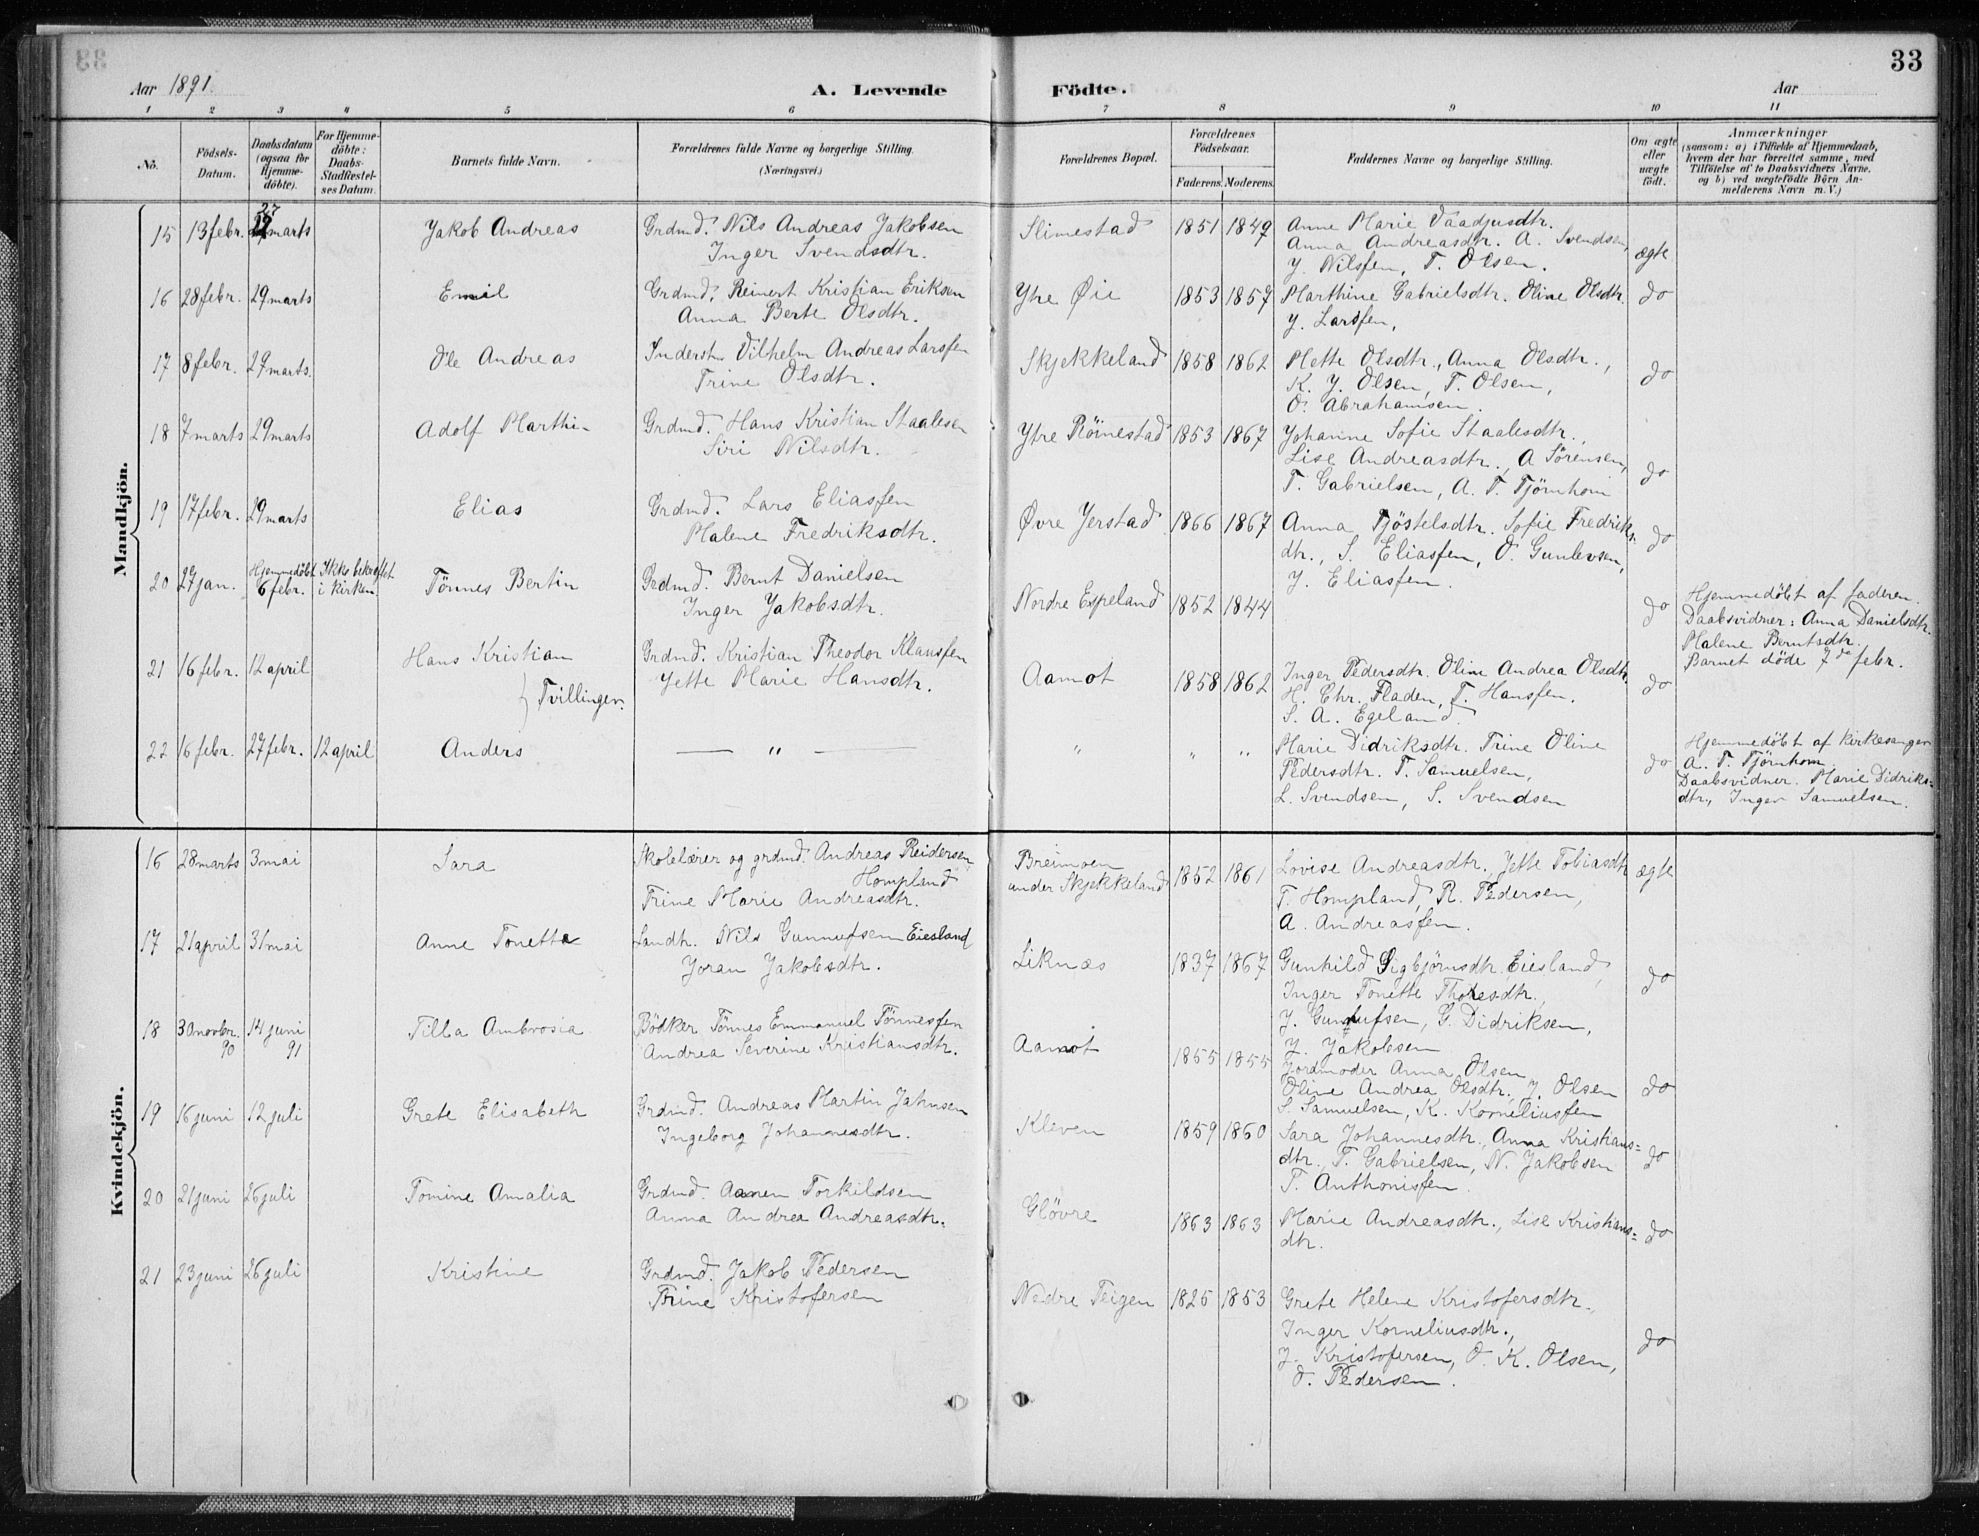 33
Aar 1891.
A. Levende Fødte.
Aar
1 2 3 4 5 6 7 8 9 10 11
No.
Fødsels-Datum.
Daabsdatum (ogsaa for Hjemme-døbte).
For Hjemme-døbte: Daabs-Stadfæstel-ses Datum.
Barnets fulde Navn.
Forældrenes fulde Navne og borgerlige Stilling. (Næringsvei.)
Forældrenes Bopæl.
Forældrenes Fødselsaar.
Faderens. Moderens.
Faddernes Navne og borgerlige Stilling.
Om ægte eller uægte født.
Anmærkninger
(saasom: a) i Tilfælde af Hjemmedaab, hvem der har forrettet samme, med Tilføielse af to Daabsvidners Navne, og b) ved uægtefødte Børn An-melderens Navn m. V.)
Mandkjön.
15 13 febr. 27 marts Jakob Andreas Grdmd. Nils Andreas Jakobsen Slimestad 1851 1849 Anne Marie Vaadjusdtr.
Inger Svendsdtr. Anna Andreasdtr. A. Svendsen, ægte
J. Nilssen, T. Olsen.
16 28 febr. 29 marts Emil Grdmd. Reinert Kristian Eriksen Ytre Øie 1853 1857 Marthine Gabrielsdtr. Oline Olsdtr. do
Anna Berte Olsdtr. J. Larssen,
17 8 febr. 29 marts. Ole Andreas Inderst. Vilhelm Andreas Larssen Skjekkeland 1858 1862 Mette Olsdtr., Anna Olsdtr., do
Trine Olsdtr. K. J. Olsen, T. Olsen,
O. Abrahamsen.
18 7 marts 29 marts Adolf Marthin Grdmd. Hans Kristian Staalesen Ytre Röinestad 1853 1867 Johanne Sofie Staalesdtr.,
Siri Nilsdtr. Lise Andreasdtr., A Sörensen, do
T. Gabrielsen, A. T. Tjörnhom
19 17 febr. 29 marts Elias Grdmd. Lars Eliassen Øvre Jerstad 1866 1867 Anna Tjöstelsdtr. Sofie Fredriks-
Malene Fredriksdtr. dtr., S. Eliassen, O. Gunlevsen, do
J. Eliassen.
20 27 jan. Hjemmedöbt 6 febr. Ikke bekræftet i kirken Tönnes Bertin Grdmd. Bernt Danielsen Nordre Espeland 1852 1844 do Hjemmedöbt af faderen.
Inger Jakobsdtr. Daabsvidner: Anna Danielsdtr.
Malene Berntsdtr.
Barnet döde 7de febr.
21 16 febr. 12 april Hans Kristian Grdmd. Kristian Theodor Klaussen Aamot 1858 1862 Inger Pedersdtr. Oline Andrea Olsdtr. do
} Tvillinger. Jette Marie Hansdtr. H. Chr. Fladen, T. Hanssen.
S. A. Egeland.
22 16 febr. 27 febr. 12 april Anders — " — " " " Marie Didriksdtr. Trine Oline do Hjemmedöbt af kirkesanger
Pedersdtr. T. Samuelsen, A. T. Tjörnhom
L. Svendsen, S. Svendsen Daabsvidner. Marie Didriks=
dtr., Inger Samuelsen.
Kvindekjön.
16 28 marts 3 mai Sara Skolelærer og grdmd. Andreas Reidersen Breimoen 1852 1861 Lovise Andreasdtr. Jette Tobiasdtr. ægte
Hompland under Skjekkeland T. Hompland, R. Pedersen,
Trine Marie Andreasdtr. A. Andreassen.
17 21 april 31 mai Anne Tonette Landh. Nils Gunnufsen Eiesland Liknæs 1837 1867 Gunhild Sigbjörnsdtr. Eiesland, do
Joran Jakobsdtr. Inger Tonette Thoresdtr.,
J. Gunnufsen, G. Didriksen,
J. Jakobsen
18 30 novbr. 90 14 juni 91 Tilla Ambrosia Bödker Tönnes Emmanuel Tönnessen Aamot 1855 1855 Jordmoder Anna Olsen
Andrea Severine Kristiansdtr. Oline Andrea Olsdtr., J. Olsen do
S. Samuelsen, K. Korneliussen
19 16 juni 12 juli Grete Elisabeth Grdmd. Andreas Martin Jahnsen Kleven 1859 1860 Sara Johannesdtr., Anna Kristians=
Ingeborg Johannesdtr. dtr., T. Gabrielsen, N. Jakobsen do
T. Anthonissen.
20 21 juni 26 juli Tomine Amalia Grdmd. Aanen Torkildsen Glövre 1863 1863 Marie Andreasdtr., Lise Kristians= do
Anna Andrea Andreasdtr. dtr.
21 23 juni 26 juli Kristine Grdmd. Jakob Pedersen Nedre Teigen 1825 1853 Grete Helene Kristofersdtr.,
Trine Kristofersen Inger Korneliusdtr., do
J. Kristofersen, O. K. Olsen,
O. Pedersen.